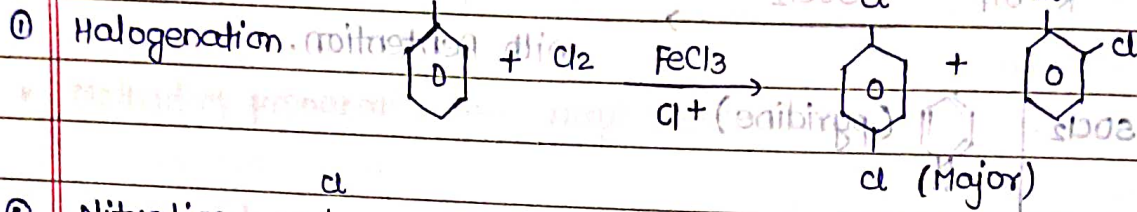 ① Halogenation. + Cl2 FeCl3 Cl+ + Cl
Cl (Major)
Cl